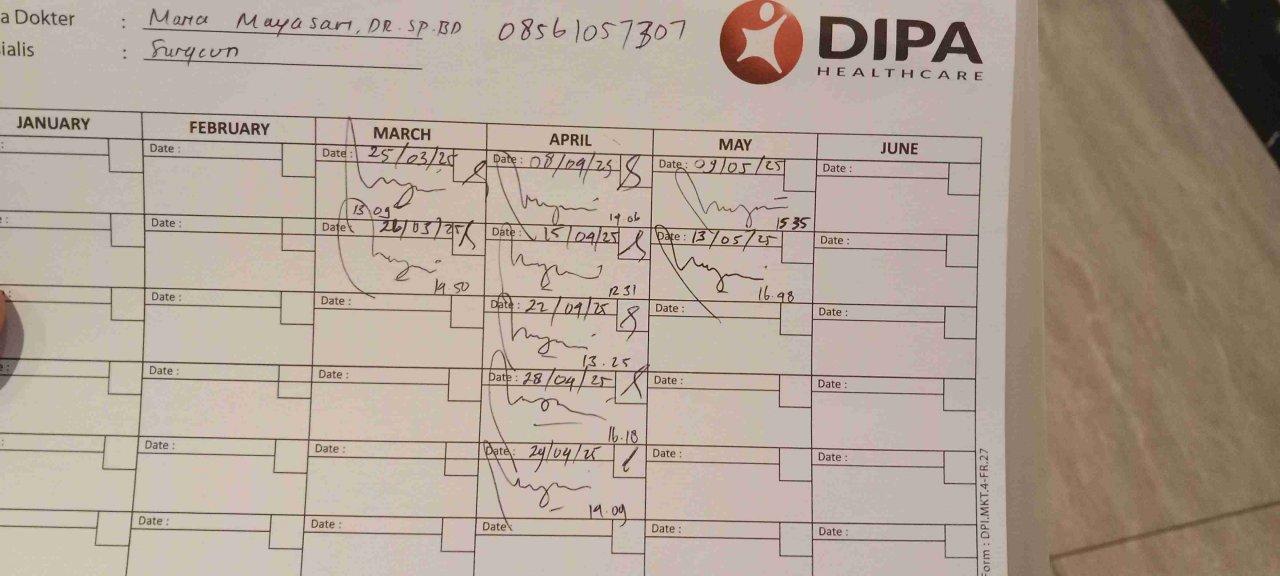 a Dokter : Maria Mayasari, DR. SP. BD 08561057307
ialis : Surgeon
DIPA
HEALTHCARE
JANUARY FEBRUARY MARCH APRIL MAY JUNE
: Date : Date : 25/03/25 Date : 08/04/25 Date : 09/05/25 Date :
13 09 19 06 15 35
: Date : Date : 26/03/25 Date : 15/04/25 Date : 13/05/25 Date :
19.50 12 31 16.48
: Date : Date : Date : 22/04/25 Date : Date :
13.25
: Date : Date : Date : 28/04/25 Date : Date :
16.18
: Date : Date : Date : 29/04/25 Date : Date :
19.09
: Date : Date : Date : Date : Date :
Form : DPI.MKT.4-FR.27